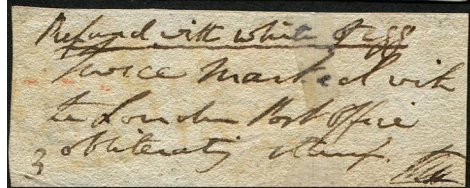 Prepared with white of egg
Twice Marked with
the London Post Office
3 obliterating stamp.